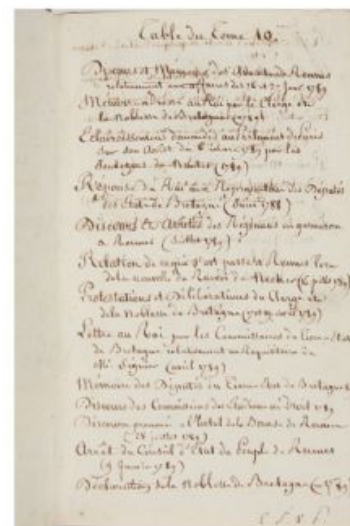 Table du Tome 10.
Discours et Mémoires des Avocats de Rennes
relativement aux affaires des 26 et 27 Janv. 1789
Mémoire adressé au Roi par le Clergé et
la Noblesse de Bretagne (1788)
Eclaircissemens demandés au Parlement de
sur son Arrêt du 6 1789 par les
(1789)
Réponse du Roi aux Représentations des Députés
des Etats de Bretagne (Juin 1788)
Discours et Arrêtés des Régimens en garnison
à Rennes (Juillet 1789)
Relation de ce qui s'est passé à Rennes lors
de la nouvelle du Renvoi de Mr Necker (16 juillet 1789)
Protestations et Délibérations du Clergé et
de la Noblesse de Bretagne (1789)
Lettre au Roi par les Commissaires du Tiers-Etat
de Bretagne relativement au Réquisitoire de
Mr Séguier (avril 1789)
Mémoire des Députés du Tiers-Etat de Bretagne
Discours des Commissaires des Etudians en Droit 1789
Discours prononcé à l'hôtel de la Bourse de Rennes
(28 1789)
Arrêt du Conseil d'Etat du Peuple de Rennes
(9 Janvier 1789)
Déclaration de la Noblesse de Bretagne (1789)